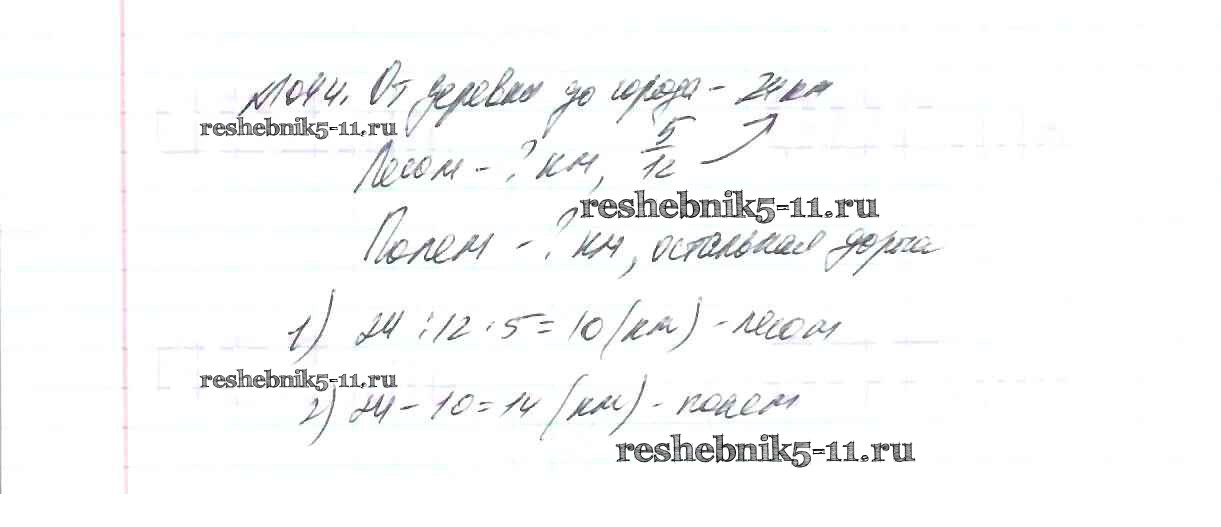 №1044. От деревни до города - 24 км
reshebnik5-11.ru
Лесом - ? км, 5/12
reshebnik5-11.ru
Полем - ? км, остальная дорога
1) 24 : 12 · 5 = 10 (км) - лесом
reshebnik5-11.ru
2) 24 - 10 = 14 (км) - полем
reshebnik5-11.ru